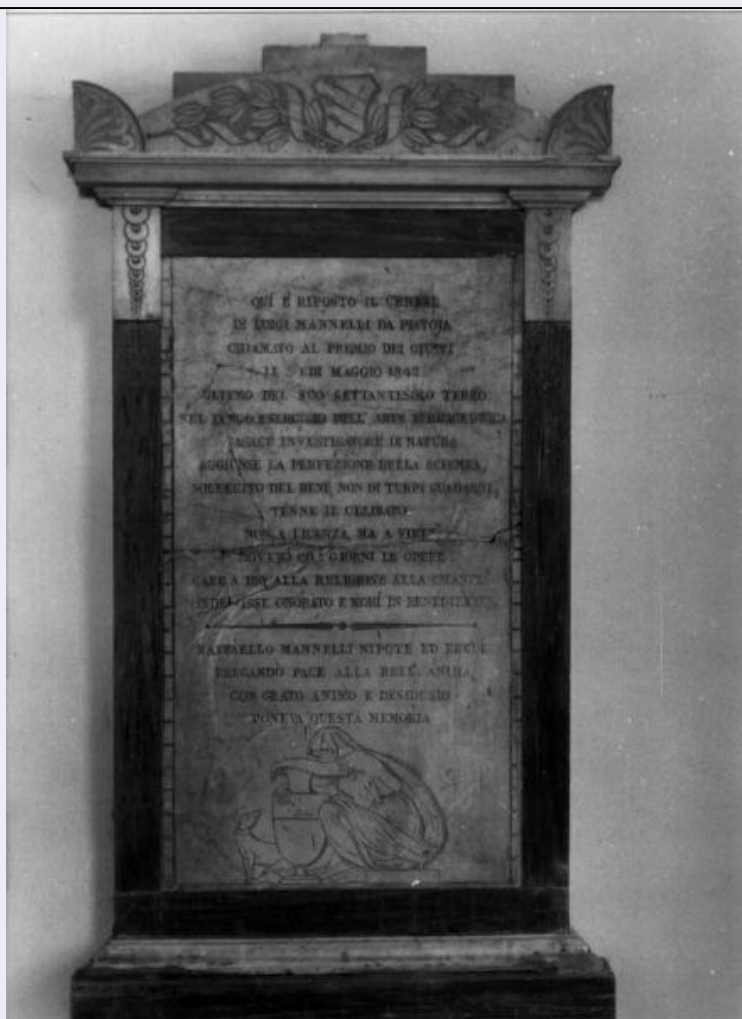 QUÌ È RIPOSTO IL CENERE
DI LUIGI MANNELLI DA PISTOJA
CHIAMATO AL PREMIO DEI GIUSTI
DI MAGGIO 184
ULTIMO DEL SUO SETTANTESIMO TERZO
NEL LUNGO ESERCIZIO DELL' ARTE
SAGACE INVESTIGATORE DI NATURA
AGGIUNSE LA PERFEZIONE DELLA SCIENZA,
SOLLECITO DEL BENE NON DI TURPI GUADAGNI,
TENNE IL CELIBATO
NON A LICENZA, MA A VIRTÙ
GIORNI LE OPERE
CARE A DIO ALLA RELIGIONE ALLA
ONORATO E MORÌ IN BENEDIZIONE
RAFFAELLO MANNELLI NIPOTE ED EREDE
PREGANDO PACE ALLA BELL' ANIMA
CON GRATO ANIMO E DESIDERIO
PONEVA QUESTA MEMORIA